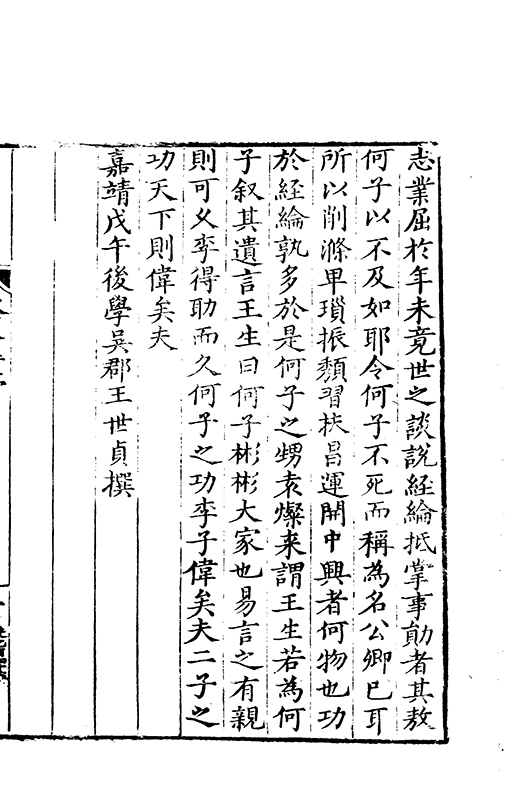 志業屈於年未竟世之談說経綸抵掌事勛者其敖
何子以不及如耶令何子不死而稱為名公卿已耳
所以削滌卑瑣振頽習扶昌運開中興者何物也功
於経綸孰多於是何子之甥袁燦来謂王生若為何
子叙其遺言王生曰何子彬彬大家也易言之有親
則可乂李得助而久何子之功李子偉矣夫二子之
功天下則偉矣夫
嘉靖戊午後學吳郡王世貞撰